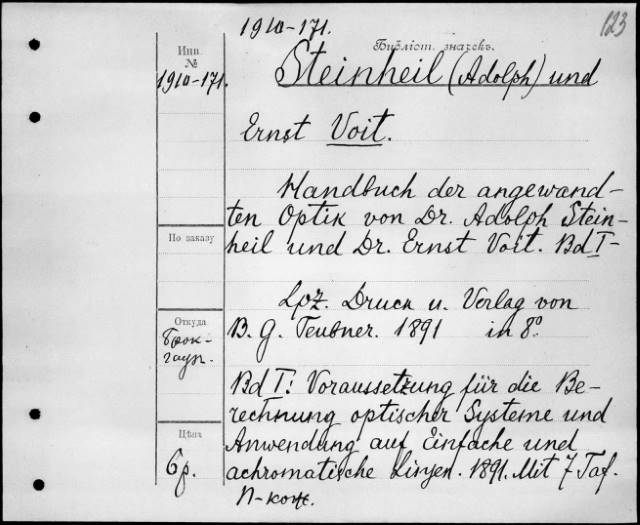 1910-171.
123
Инв. №
Библіот. значекъ.
1910-171.
Steinheil (Adolph) und
Ernst Voit.
Handbuch der angewand-
ten Optik von Dr. Adolph Stein-
heil und Dr. Ernst Voit. Bd I-
По заказу
Lpz. Druck u. Verlag von
B. G. Teubner. 1891 in 8°
Откуда
Брок-
гауз.
Bd I: Voraussetzung für die Be-
rechnung optischer Systeme und
Anwendung auf Einfache und
achromatische Linsen. 1891. Mit 7 Taf.
Цѣна
6 р.
П-кож.